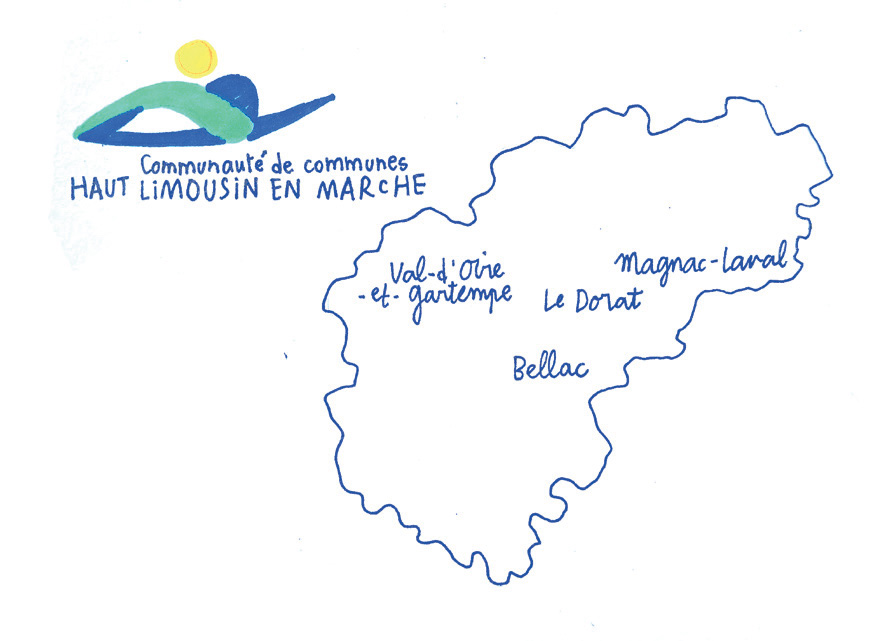 Communauté de communes
HAUT LiMOUSiN EN MARCHE
Val-d'Oire
-et-gartempe
Magnac-Laval
Le Dorat
Bellac